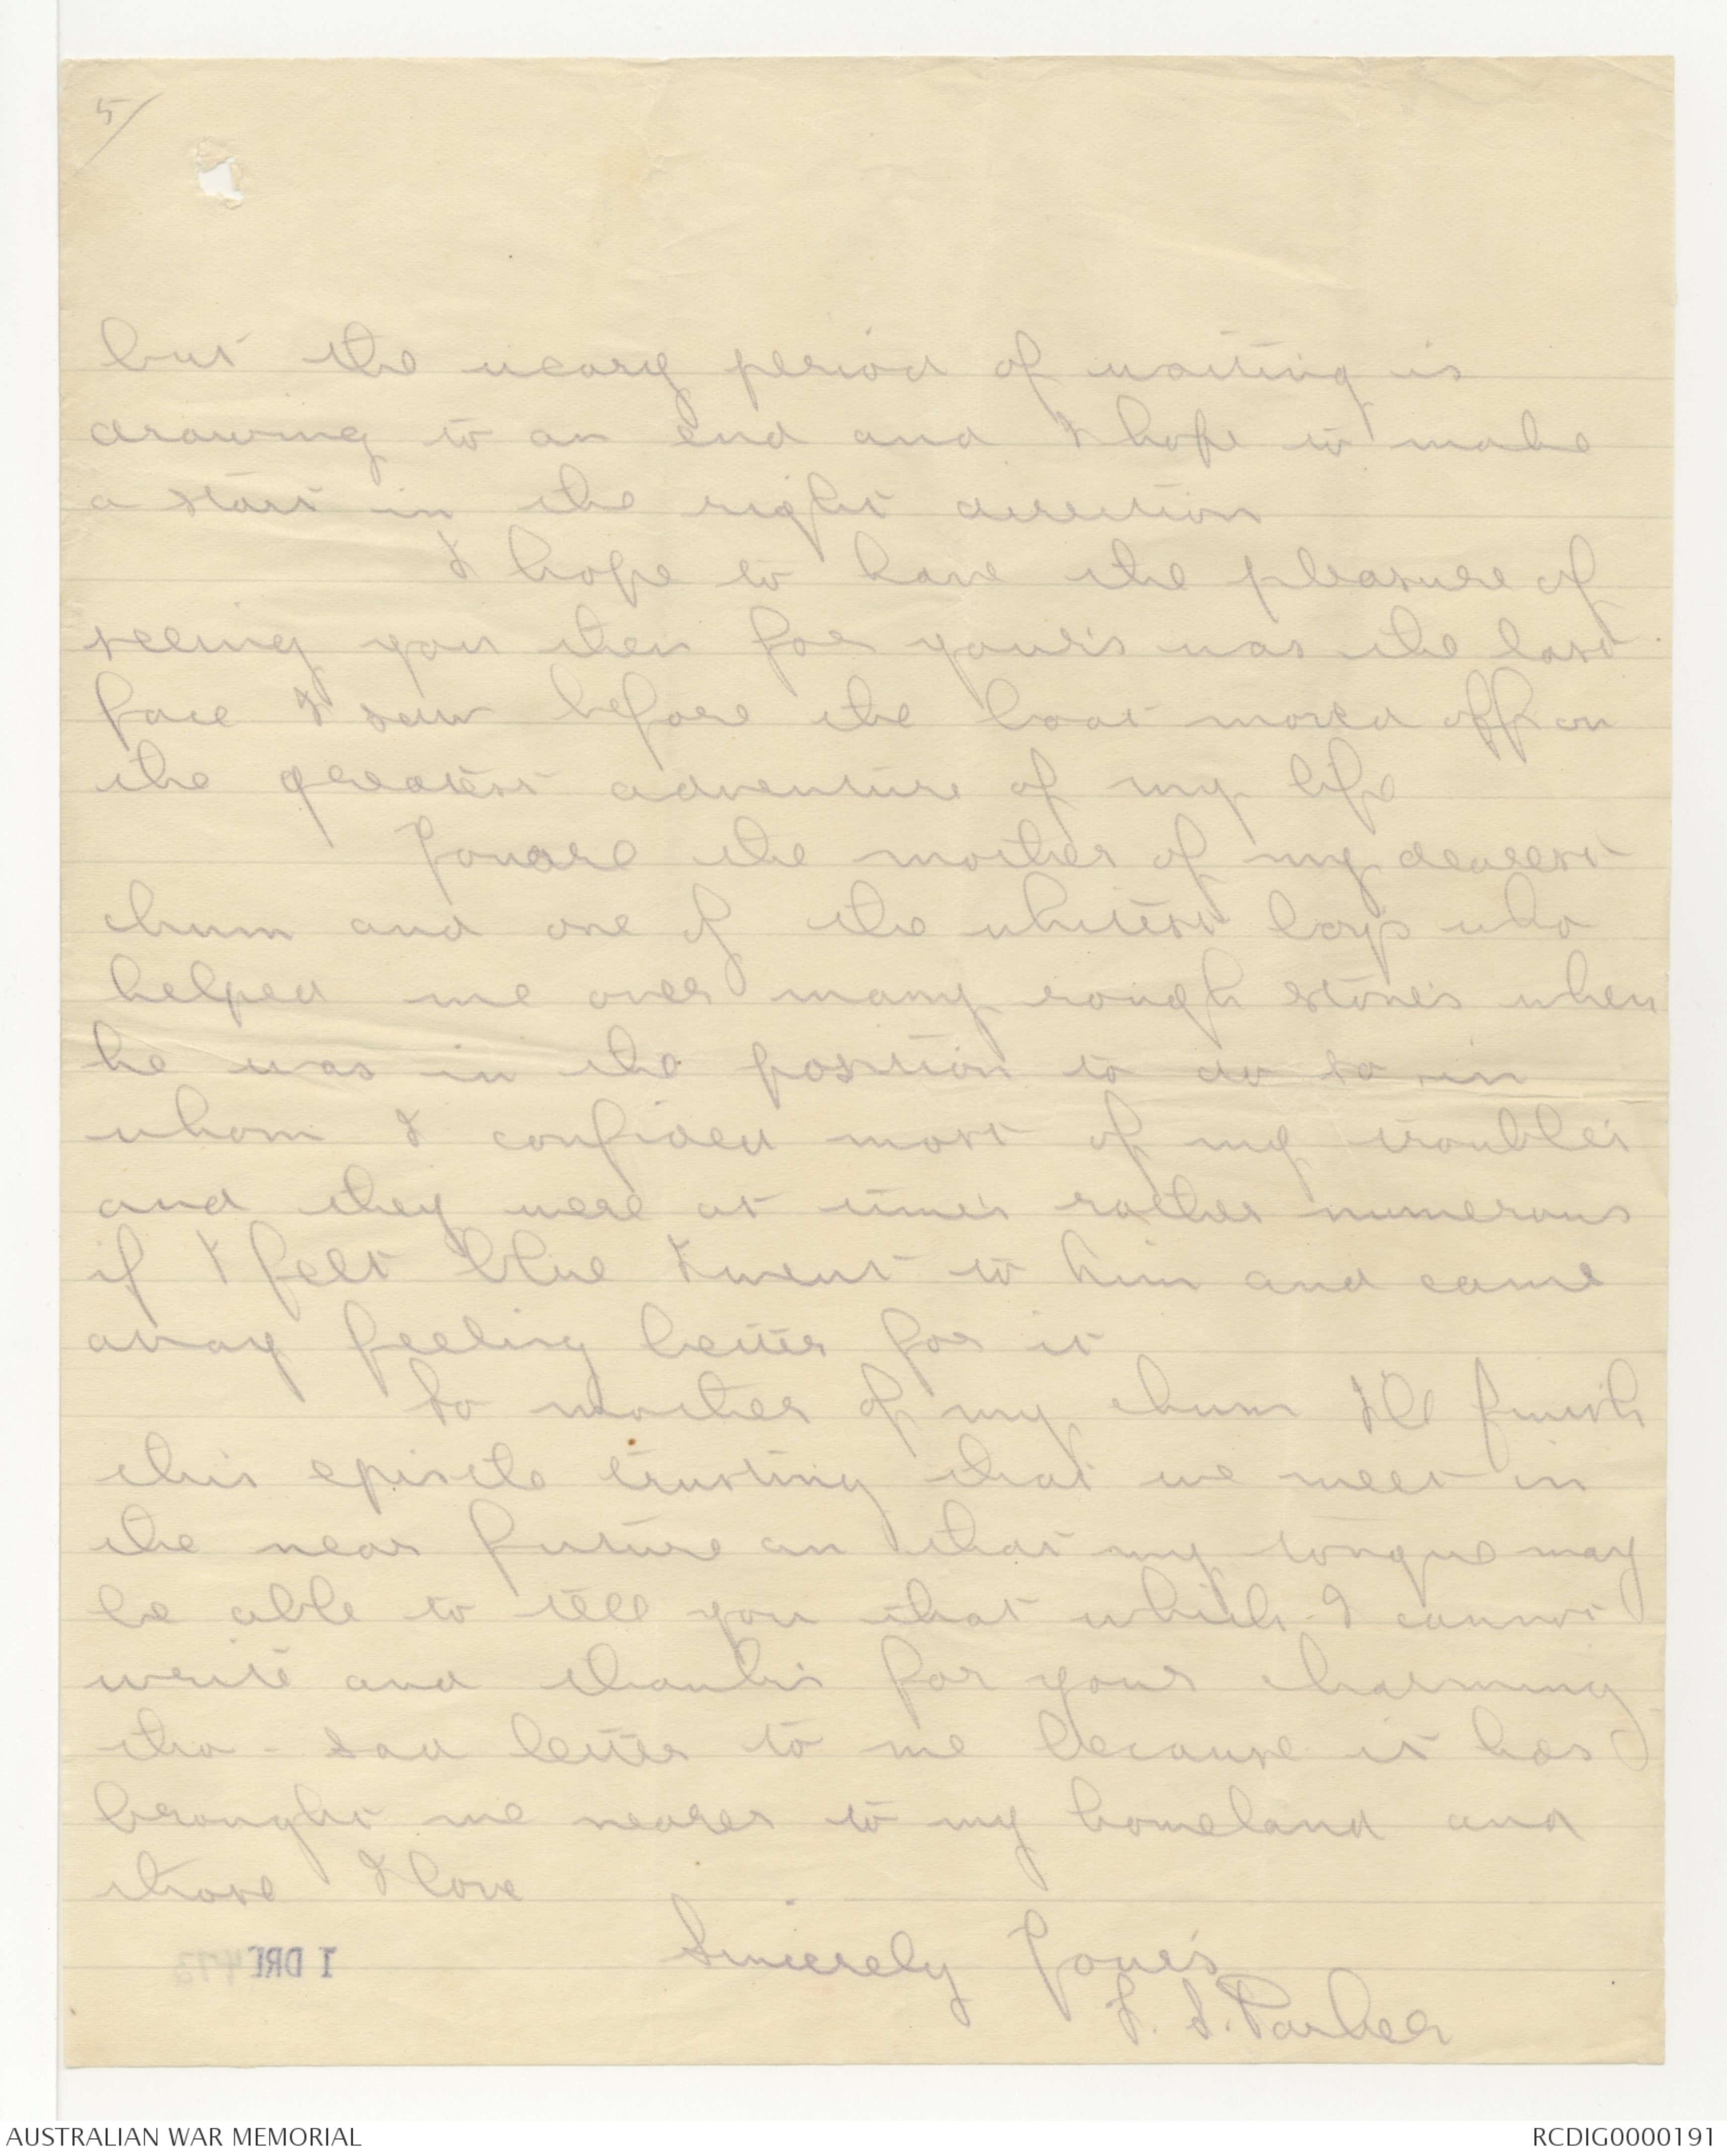 5/
but the weary period of waiting is
drawing to an end and I hope to make
a start in the right direction
I hope to have the pleasure of
seeing you then for your's was the last
face I saw before the boat moved off on
the greatest adventure of my life
You are the mother of my dearest
chum and one of the whitest boys who
helped me over many rough stones when
he was in the position to do so in
whom I confided most of my trouble's
and they were at time's rather numerous
if I felt blue I went to him and came
away feeling better for it
So mother of my chum I'll finish
this episitle trusting that we meet in
the near future an that my tongue may
be able to tell you that which I cannot
write and thank's for your charming
tho - sad letter to me because it has
brought me nearer to my homeland and
those I love
Sincerely Your's
S. Parker
1 DRL 473
AUSTRALIAN WAR MEMORIAL
RCDIG0000191